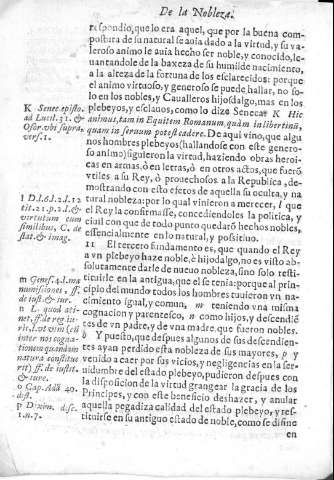 De la Nobleza.
respondio, que lo era aquel, que por la buena compostura
postura de su natural se auia dado a la virtud, y su valeroso
leroso animo le auia hecho ser noble, y conocido, leuantandole
uantandole de la baxeza de su humilde nacimiento,
a la alteza de la fortuna de los esclarecidos: porque
el animo virtuoso, y generoso se puede hallar, no solo
lo en los nobles, y Caualleros hijosdalgo, mas en los
plebeyos, y esclauos, como lo dize Seneca K Hic
animus, tam in Equitem Romanum, quàm in libertinũ,
quam in seruum potest cadere. De aqui vino, que algunos
nos hombres plebeyos (hallandose con este generoso
so animo) siguieron la virtud, haziendo obras heroicas
cas en armas, ò en letras, ò en otros actos, que fuerō
vtiles a su Rey, ò prouechosos a la Republica, demostrando
mostrando con esto efetos de aquella su oculta, y natural
tural nobleza: por lo qual vinieron a merecer, l que
el Rey la confirmasse, concediendoles la politica, y
ciuil con que de todo punto quedarō hechos nobles,
essencialmente en lo natural, y possitiuo.
11 El tercero fundamento es, que quando el Rey
a vn plebeyo haze noble, è hijodalgo, no es visto absolutamente
solutamente darle de nueuo nobleza, sino solo restituirle
tituirle en la antigua, que el se tenia: porque al principio
cipio del mundo todos los hombres tuuieron vn nacimiento
cimiento igual, y comun, m teniendo vna misma
cognacion y parentesco, n como hijos, y descendiētes
tes de vn padre, y de vna madre, que fueron nobles.
o Y puesto, que despues algunos de sus descendientes
tes ayan perdido esta nobleza de sus mayores, p y
venido a caer por sus vicios, y negligencias en la seruidumbre
uidumbre del estado plebeyo, pudieron despues con
la disposicion de la virtud grangear la gracia de los
Principes, y con este beneficio deshazer, y anular
aquella pegadiza calidad del estado plebeyo, y restituirse
tituirse en su antiguo estado de noble, como se difine
en
K Senec. epist.
ad Lucil. 31. &
Osor. vbi supra,
vers. 1.
tit. 21. p. 2. &
virtutum cum
similibus, C. de
stat. & imag.
m Genes. 4. l. manumissiones
numissiones, ff.
de iust. & iur.
natura constituerit)
rit) ff. de iustit.
& iure.
dist.
1. n. 7.